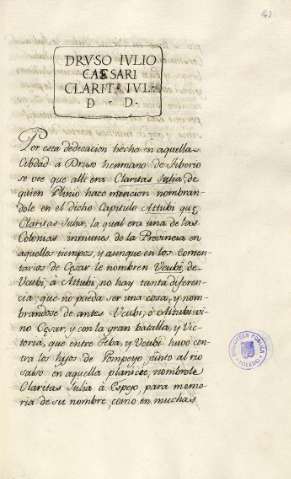 DRVSO IVLIO
CAESARI
CLARIT. IVL.
D . D
Por esta dedicacion hecha en aquella
Cibdad à Druso hermano de Tiberio
se vee que alli era Claritas Iulia, de
quien Plinio hace mencion nombran-
dole en el dicho Capitulo Attubi quę
Claritas Iulia, la qual era una de las
Colonias inmunes de la Provincia en
aquellos tiempos, y aunque en los comen-
tarios de Cesar le nombren Vcubi, de
Vcubi, à Attubi, no hay tanta diferen-
cia que no pueda ser una cosa, y nom-
brandose de antes Vcubi, ò Attubi vi-
no Cesar, y con la gran batalla, y Vic-
toria, que entre Teba, y Vcubi huvo con-
tra los hijos de Pompeyo junto al rio
salso en aquella planicie, nombrole
Claritas Iulia à Espejo, para memo-
ria de su nombre, como en muchas